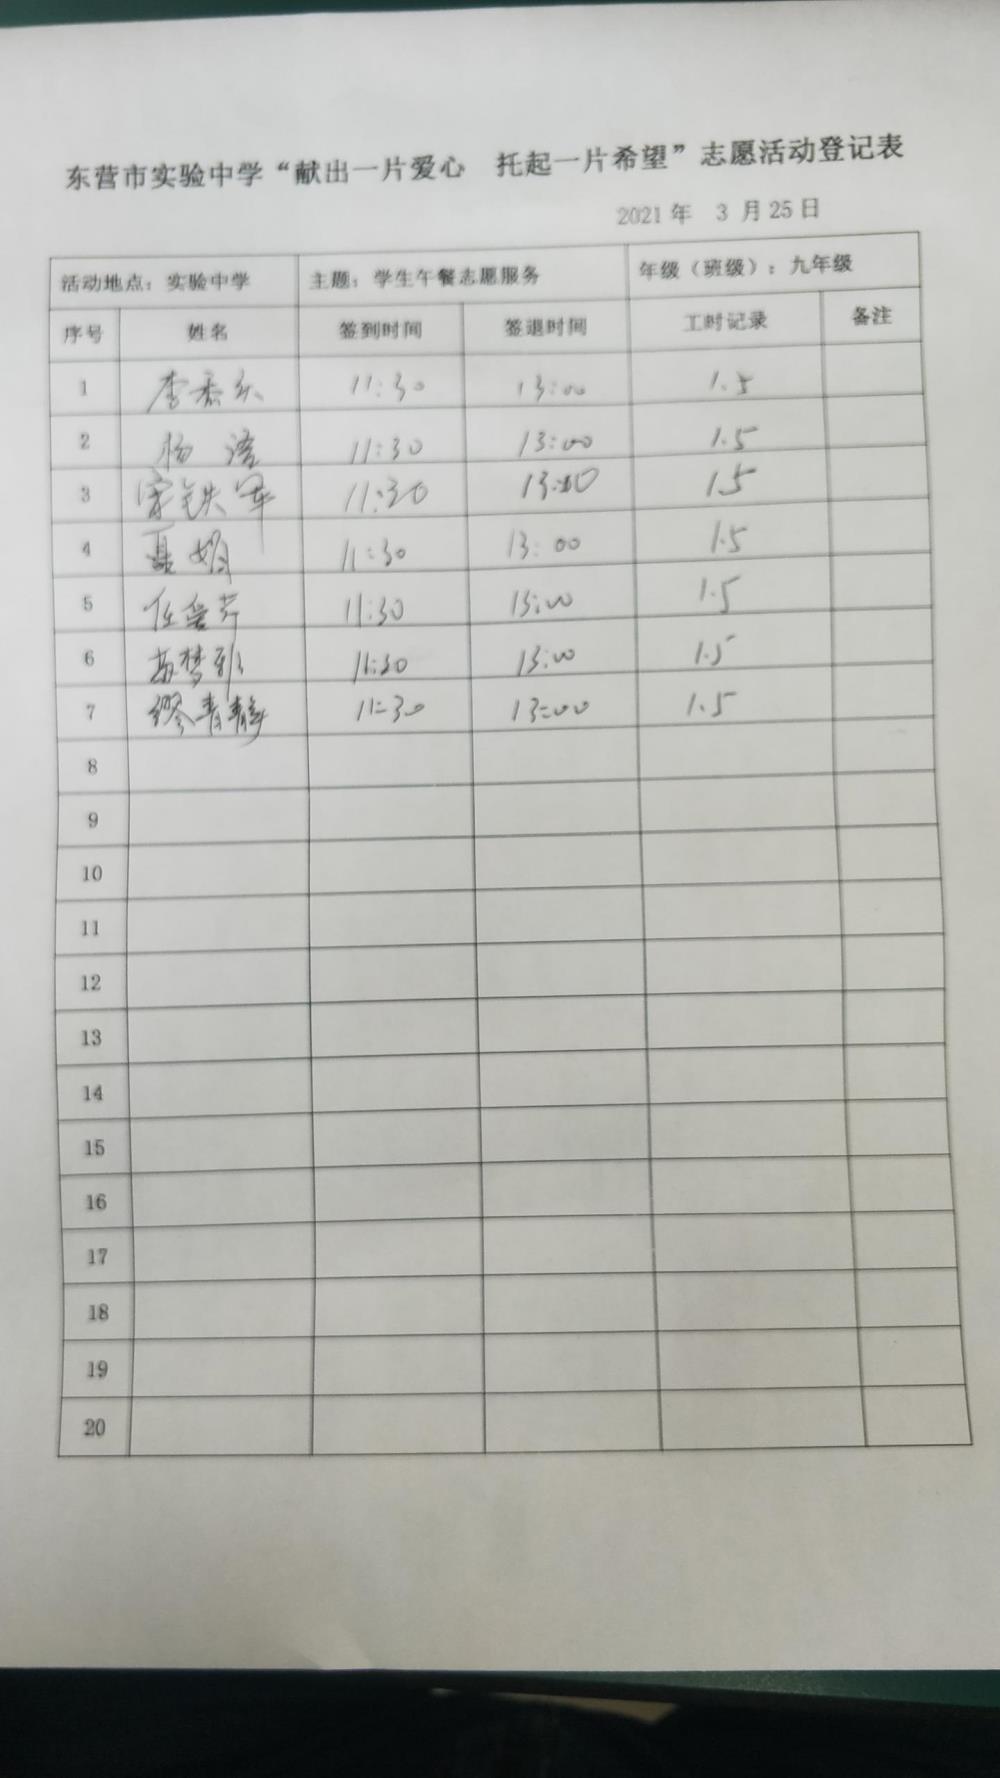 东营市实验中学“献出一片爱心 托起一片希望”志愿活动登记表
2021年 3 月 25日
活动地点：实验中学 主题：学生午餐志愿服务 年级（班级）：九年级
序号 姓名 签到时间 签退时间 工时记录 备注
1 李 11:30 13:00 1.5
2 杨 11:30 13:00 1.5
3 宋铁军 11:30 13:00 1.5
4 聂娟 11:30 13:00 1.5
5 任爱芹 11:30 13:00 1.5
6 苗梦 11:30 13:00 1.5
7 缪青静 11:30 13:00 1.5
8
9
10
11
12
13
14
15
16
17
18
19
20